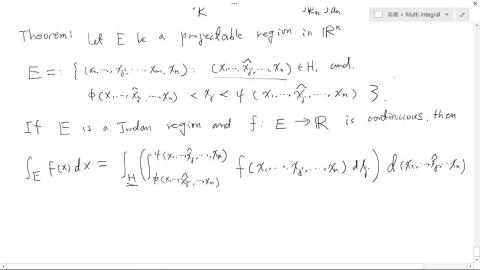 K Kn an
高微 > Multi integral
Theorem: Let E be a projectable region in ℝⁿ
E =: { (x₁, …, xⱼ, …, xₙ) : (x₁, …, x̂ⱼ, …, xₙ) ∈ H, and
ϕ(x₁, …, x̂ⱼ, …, xₙ) < xⱼ < ψ(x₁, …, x̂ⱼ, …, xₙ) }.
If E is a Jordan region and f: E → ℝ is continuous, then
∫_E f(x) dx = ∫_H ( ∫_{ϕ(x₁, …, x̂ⱼ, …, xₙ)}^{ψ(x₁, …, x̂ⱼ, …, xₙ)} f(x₁, …, xⱼ, …, xₙ) dxⱼ ) d(x₁, …, x̂ⱼ, …, xₙ)